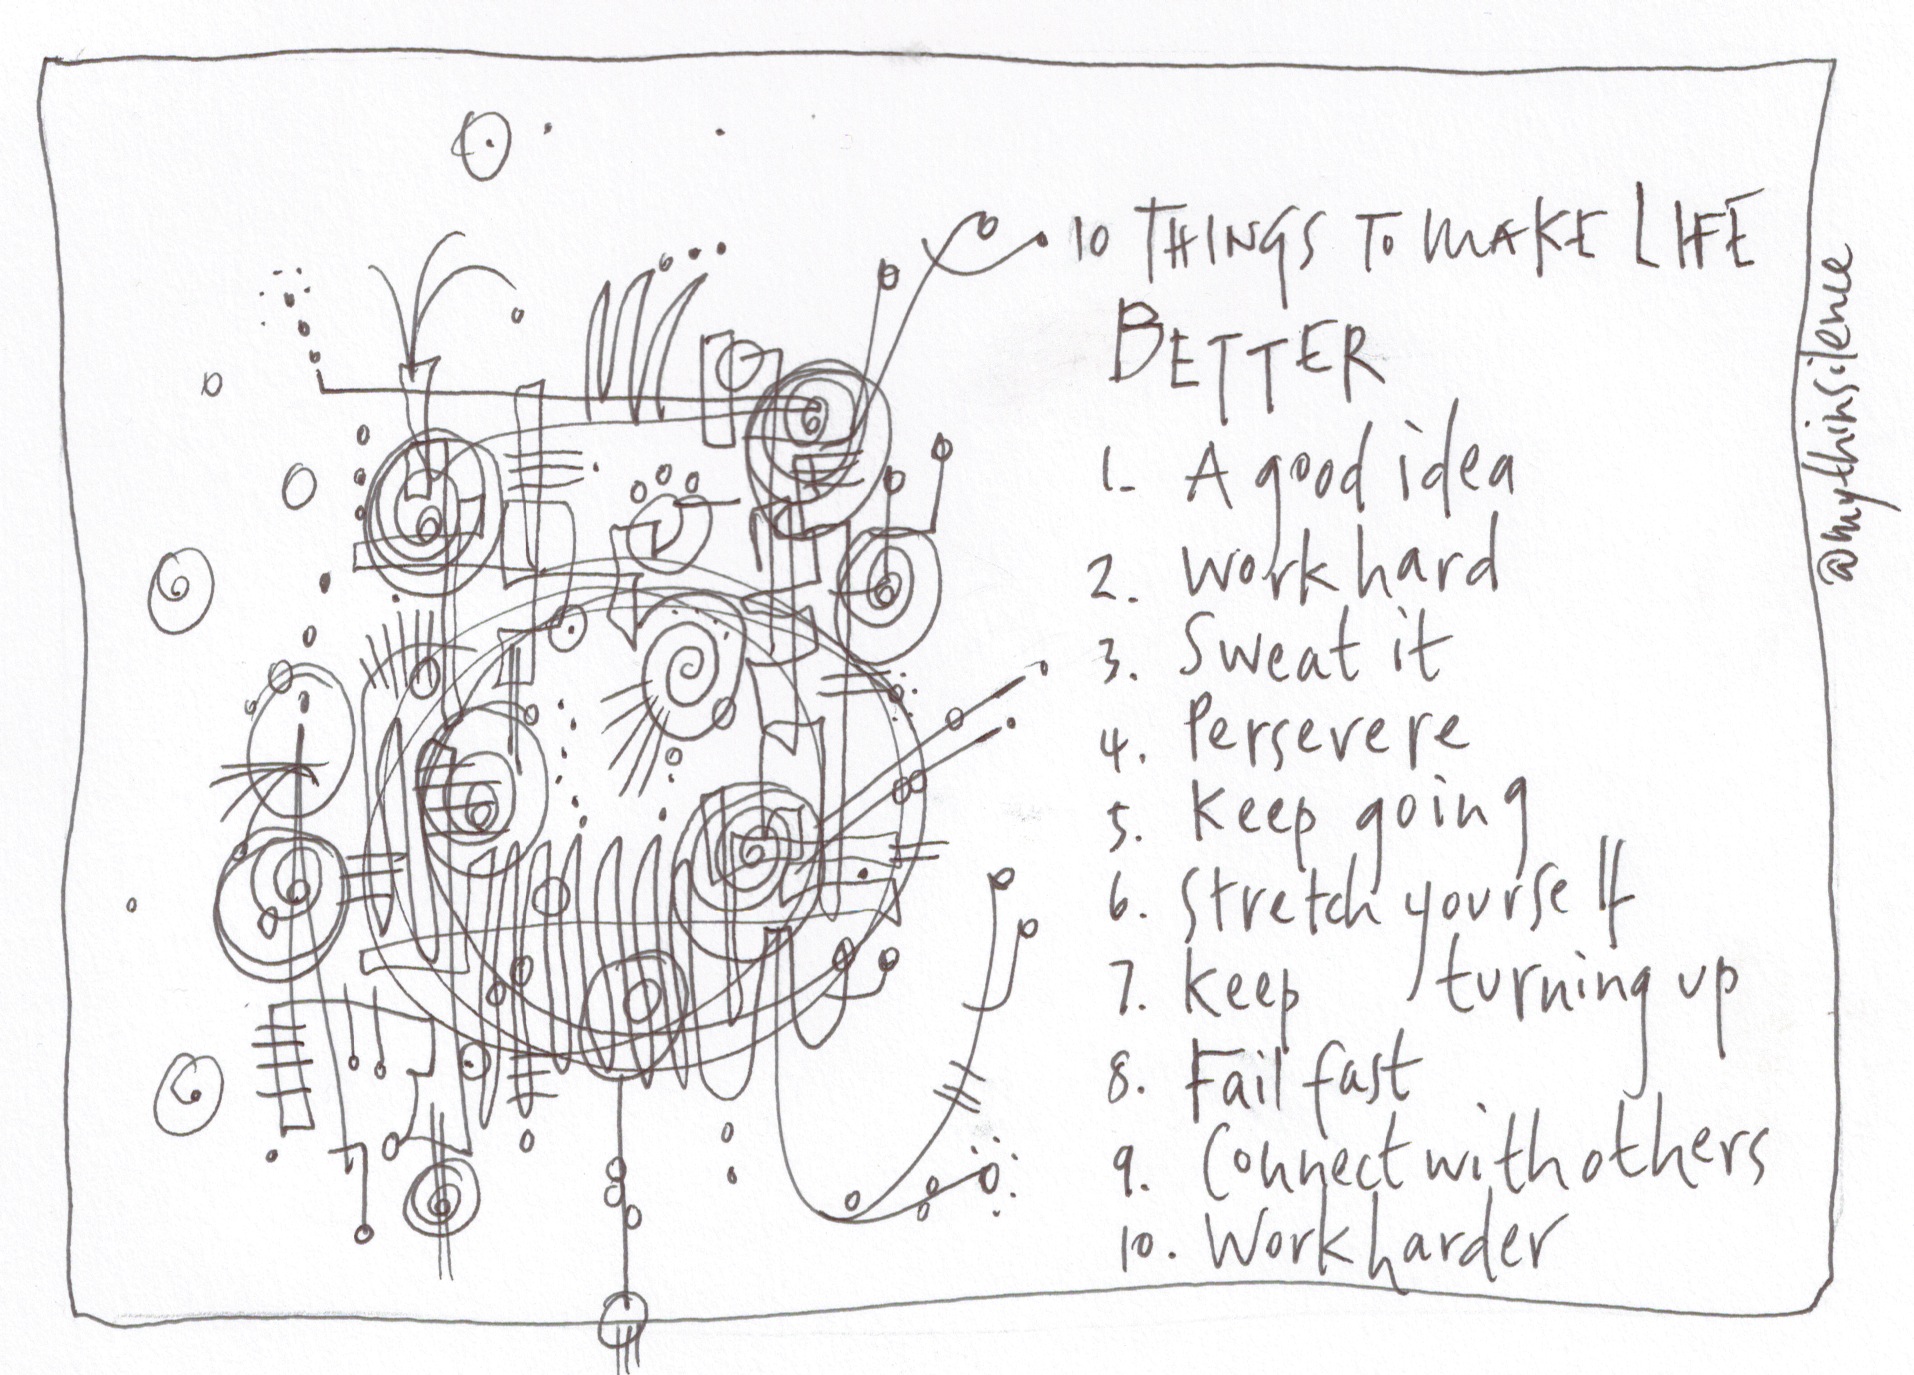 10 THINGS TO MAKE LIFE
BETTER
1. A good idea
2. Work hard
3. Sweat it
4. Persevere
5. Keep going
6. Stretch yourself
7. Keep turning up
8. Fail fast
9. Connect with others
10. Work harder
@mythinsilence